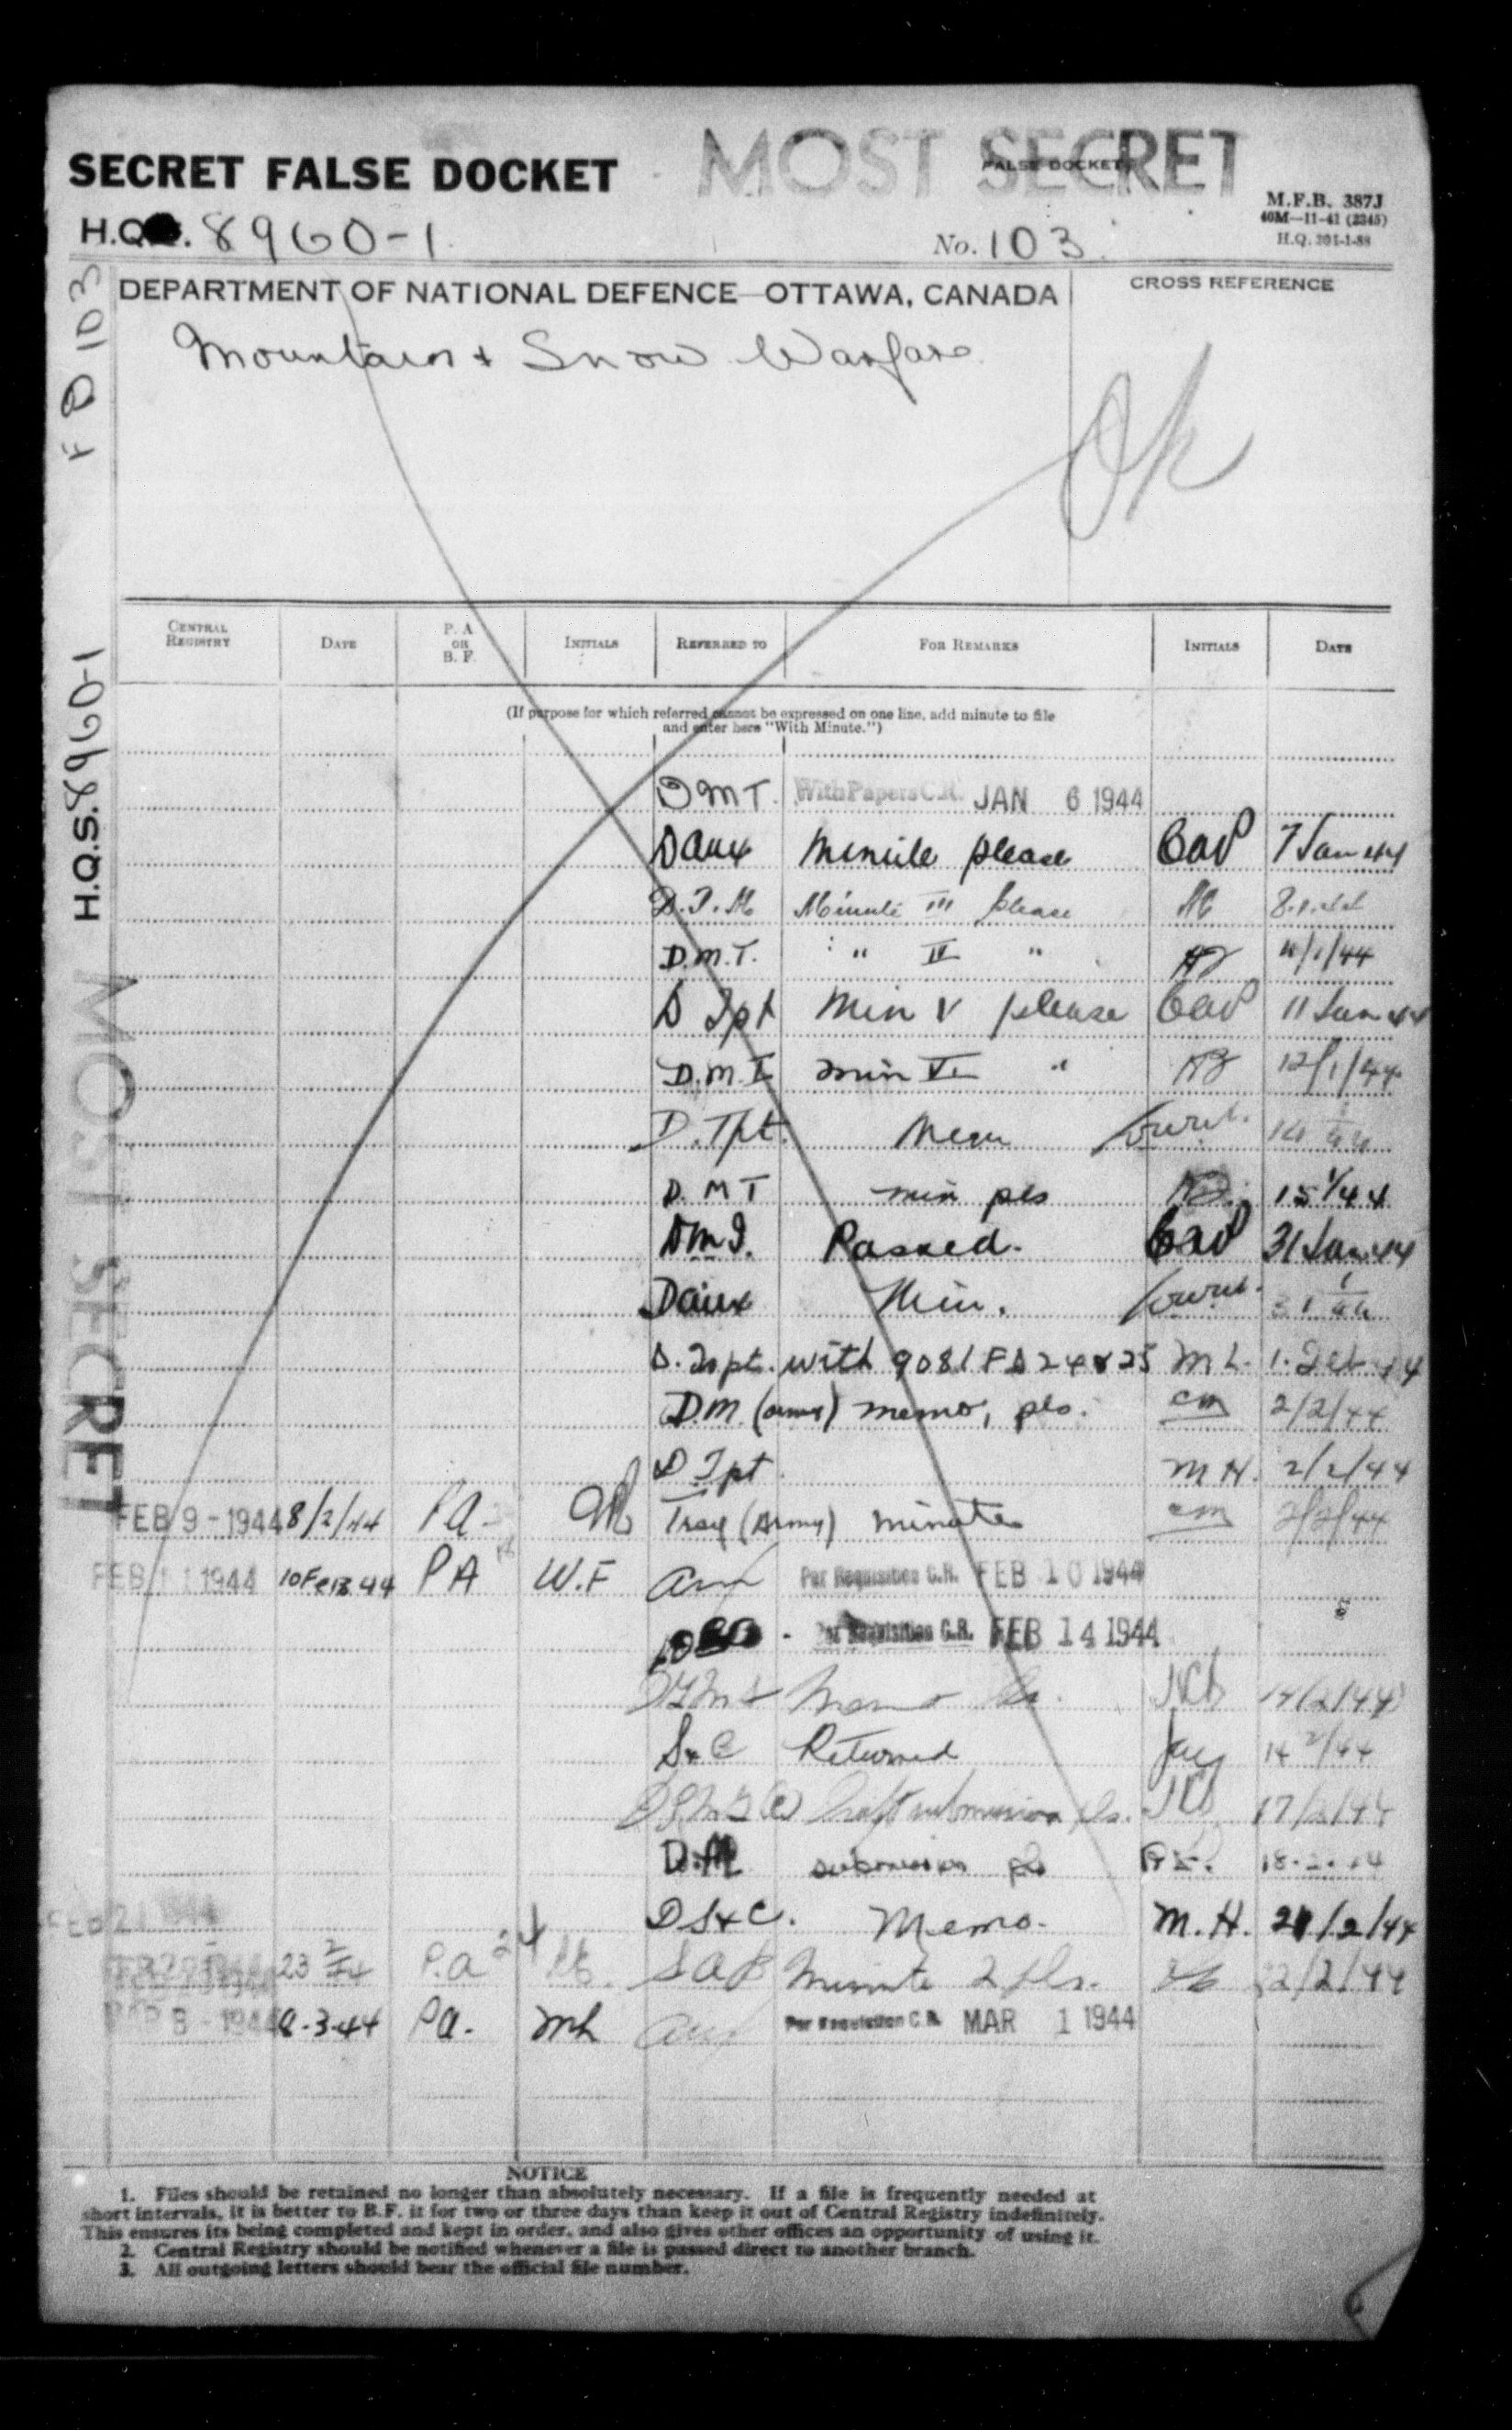 MOST SECRET
SECRET FALSE DOCKET
FALSE DOCKET
M.F.B. 387J
40M—11-41 (2345)
H.Q. 301-1-88
H.Q. 8960-1 No. 103
DEPARTMENT OF NATIONAL DEFENCE—OTTAWA, CANADA
CROSS REFERENCE
Mountain & Snow Warfare
Ok
F D 103
H.Q.S. 8960-1
MOST SECRET
CENTRAL REGISTRY DATE P. A OR B. F. INITIALS REFERRED TO FOR REMARKS INITIALS DATE
(If purpose for which referred cannot be expressed on one line, add minute to file
and enter here "With Minute.")
DMT. With Papers C.R. JAN 6 1944
D Aux Minute please 7 Jan 44
Minute III please 8.1.44
D.M.T. " " 11/1/44
D Tpt Min V please 11 Jan 44
min VI " 12/1/44
D. Tpt.
D. MT min pls 15 1/44
Passed. 31 Jan 44
D Aux Min.
with 9081 FD 24 & 25 M L. 1. Feb 44
D.M. (army) memo, pls. cm 2/2/44
D Tpt M H. 2/2/44
FEB 9 - 1944 8/2/44 PA (Army) minute cm 2/2/44
FEB 11 1944 10 Feb 44 PA W.F Per Requisition C.R. FEB 10 1944
Per Requisition C.R. FEB 14 1944
Memo 14/2/44
S & C Returned 14 2/44
Draft submission pls. 17/2/44
D.M submission pls 18.2.44
D S & C. Memo. M.H. 21/2/44
23 2/44 P.A Minute 2 pls. 22/2/44
MAR 8 - 1944 8-3-44 PA. Mh Per Requisition C.R. MAR 1 1944
NOTICE
1. Files should be retained no longer than absolutely necessary. If a file is frequently needed at
short intervals, it is better to B.F. it for two or three days than keep it out of Central Registry indefinitely.
This ensures its being completed and kept in order, and also gives other offices an opportunity of using it.
2. Central Registry should be notified whenever a file is passed direct to another branch.
3. All outgoing letters should bear the official file number.